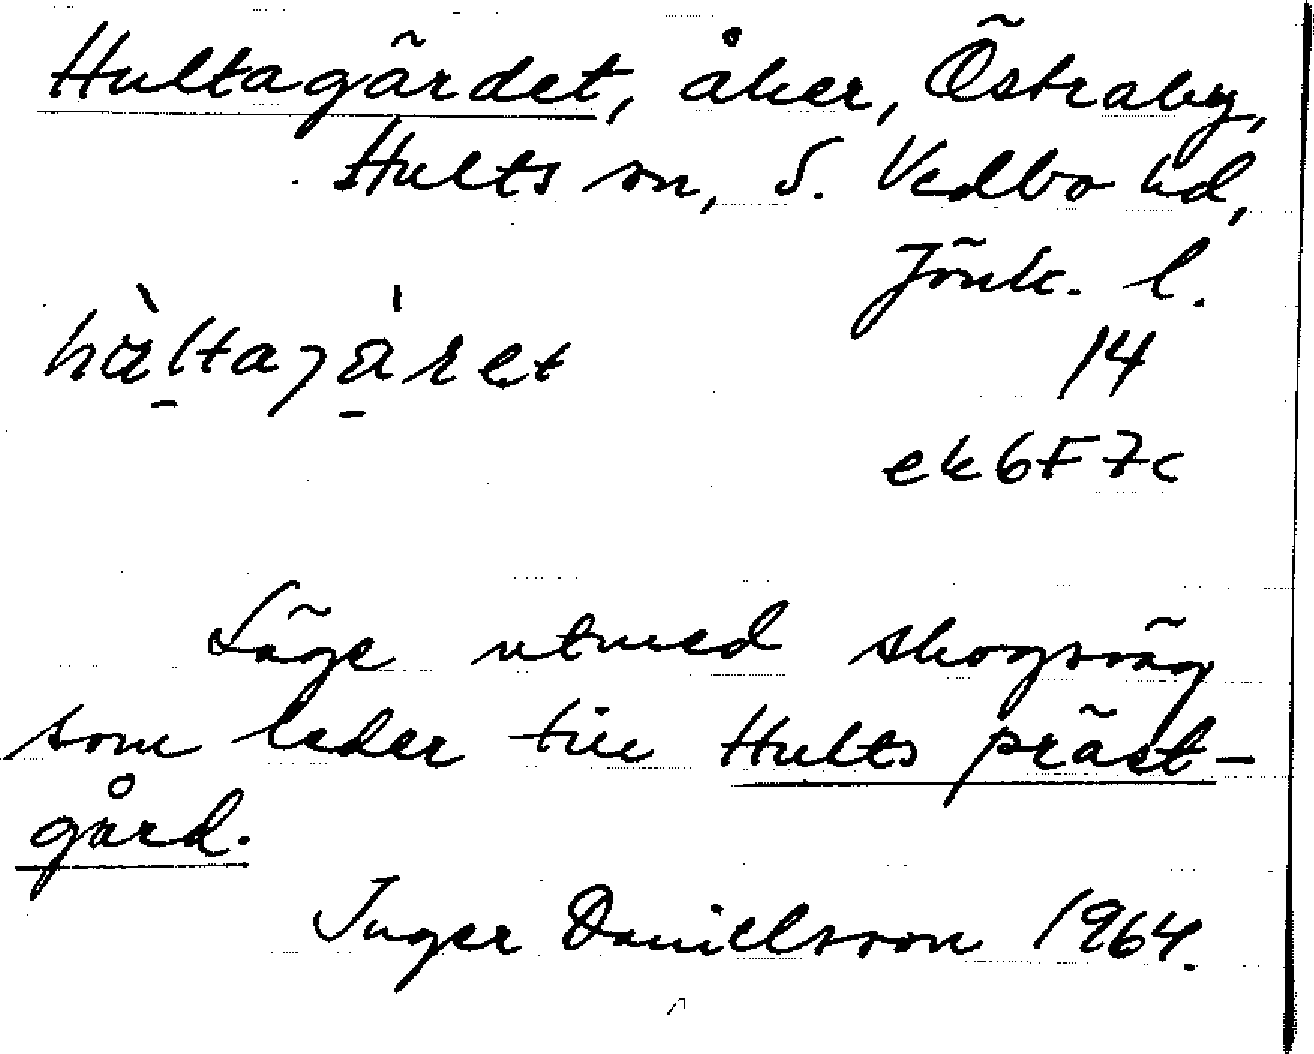 Hultagärdet, åker, Östraby,
Hults sn, S. Vedbo hd,
Jönk. l.
14
ek 6F 7c
Läge utmed skogsväg
som leder till Hults präst-
gård.
Inger Danielsson 1964.